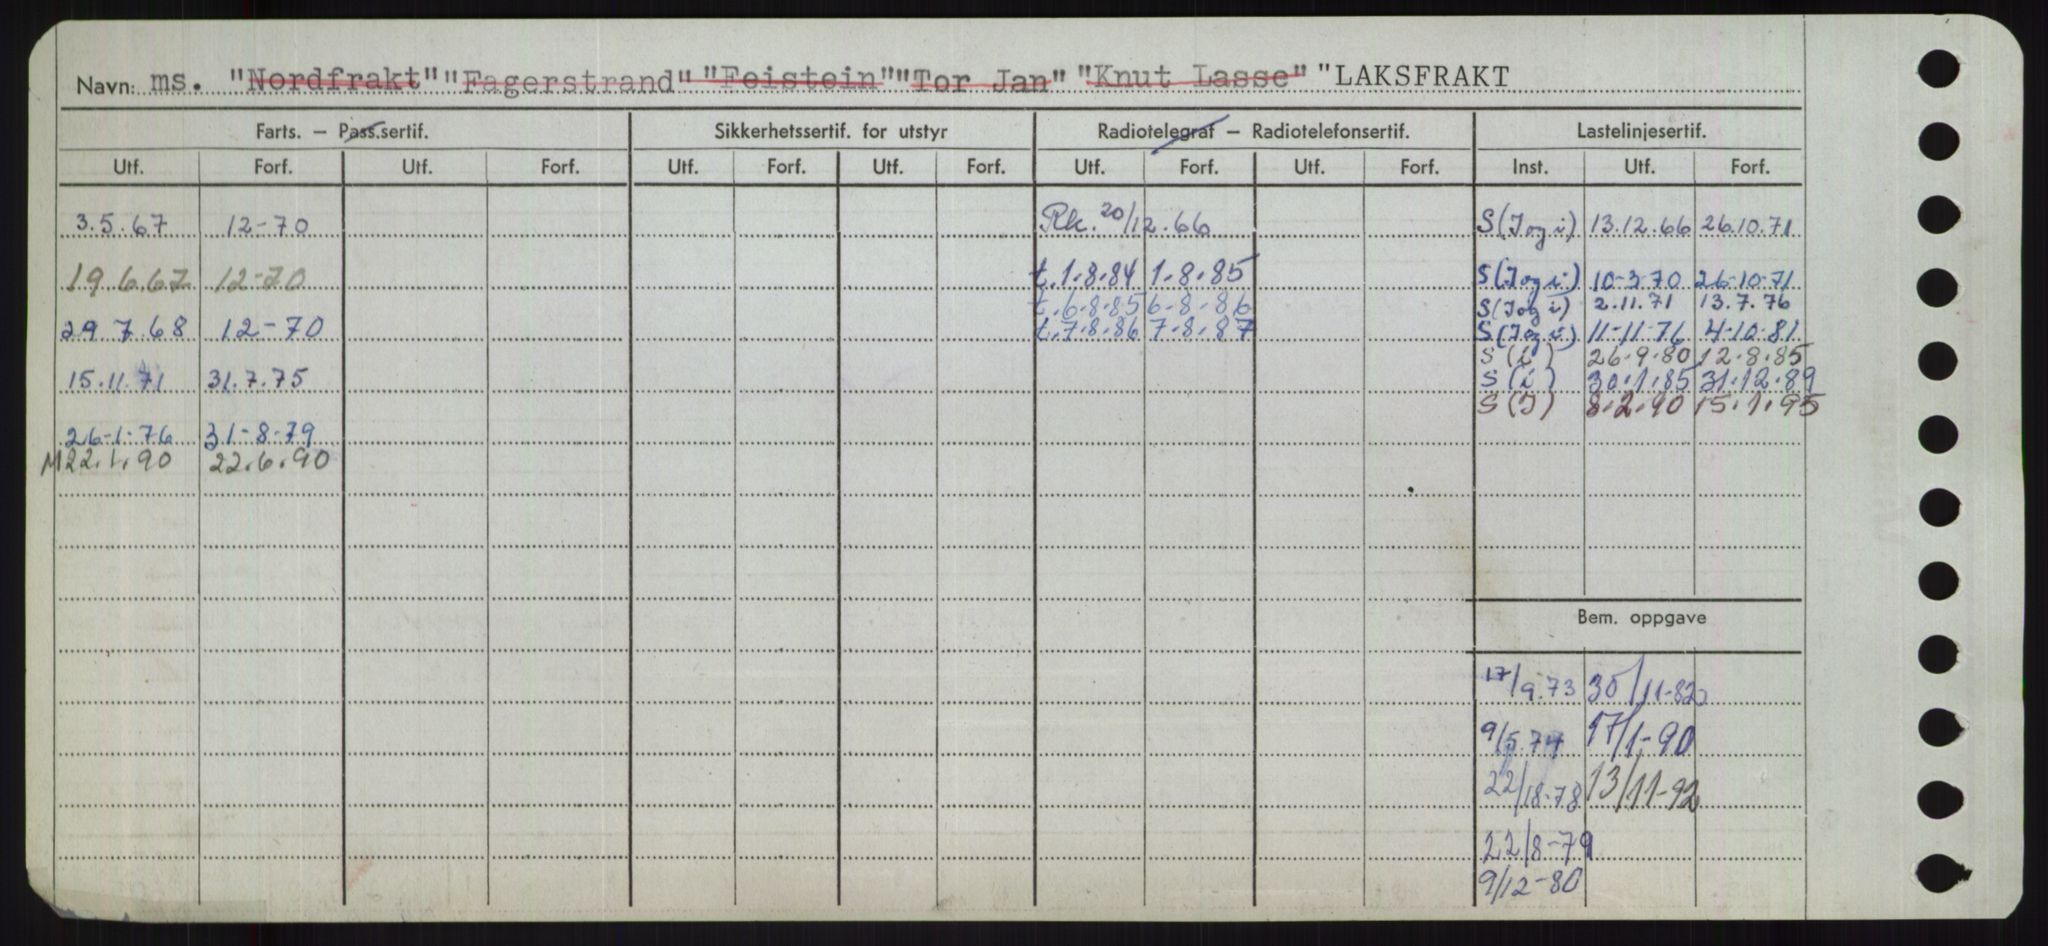 Navn: ms. "Nordfrakt" "Fagerstrand" "Feistein" "Tor Jan" "Knut Lasse" "LAKSFRAKT
Farts. – Pass.sertif. Sikkerhetssertif. for utstyr Radiotelegraf – Radiotelefonsertif. Lastelinjesertif.
Utf. Forf. Utf. Forf. Utf. Forf. Utf. Forf. Utf. Forf. Utf. Forf. Inst. Utf. Forf.
3.5.67 12-70 Rk. 20/12.66 S(I og i) 13.12.66 26.10.71
19.6.67 12-70 t. 1.8.84 1.8.85 S(I og i) 10-3-70 26-10-71
t. 6.8.85 6-8-86 S(I og i) 2.11.71 13.7.76
29.7.68 12-70 t. 7.8.86 7-8-87 S(I og i) 11-11-76 4-10-81
S(i) 26.9.80 12.8.85
15.11.71 31.7.75 S(i) 30.1.85 31.12.89
S(I) 8.2.90 15.1.95
26-1-76 31-8-79
M22.1.90 22.6.90
Bem. oppgave
17/9.73 30/11-82
9/5.74 17/1-90
22/18-78 13/11-92
22/8-79
9/12-80